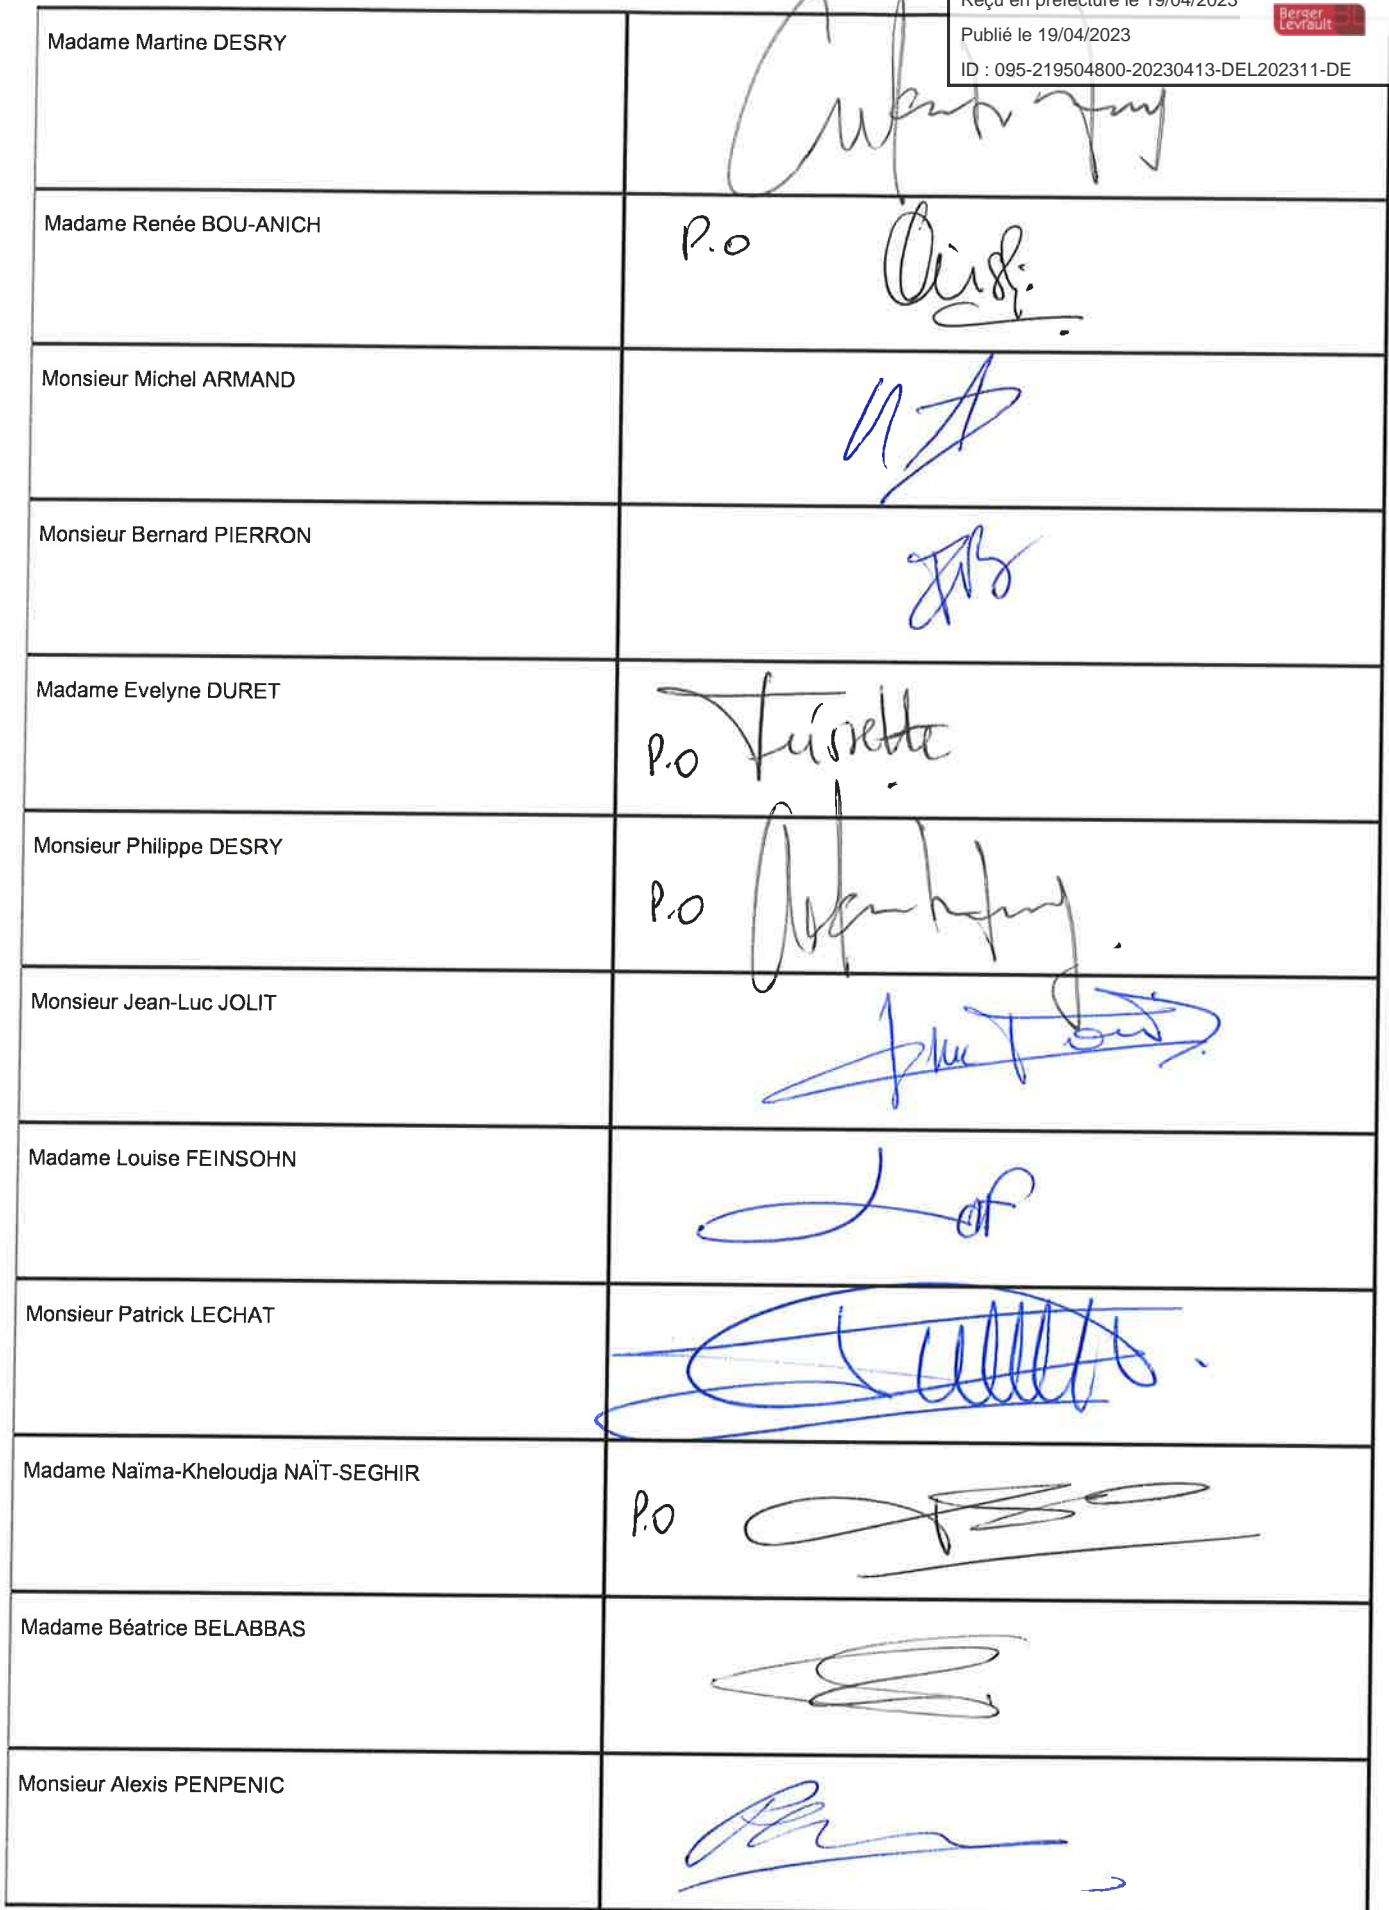 Reçu en préfecture le 19/04/2023
Berger
Levrault
Publié le 19/04/2023
ID : 095-219504800-20230413-DEL202311-DE
Madame Martine DESRY
Madame Renée BOU-ANICH
P.O
Monsieur Michel ARMAND
Monsieur Bernard PIERRON
Madame Evelyne DURET
P.O
Monsieur Philippe DESRY
P.O
Monsieur Jean-Luc JOLIT
Madame Louise FEINSOHN
Monsieur Patrick LECHAT
Madame Naïma-Kheloudja NAÏT-SEGHIR
P.O
Madame Béatrice BELABBAS
Monsieur Alexis PENPENIC